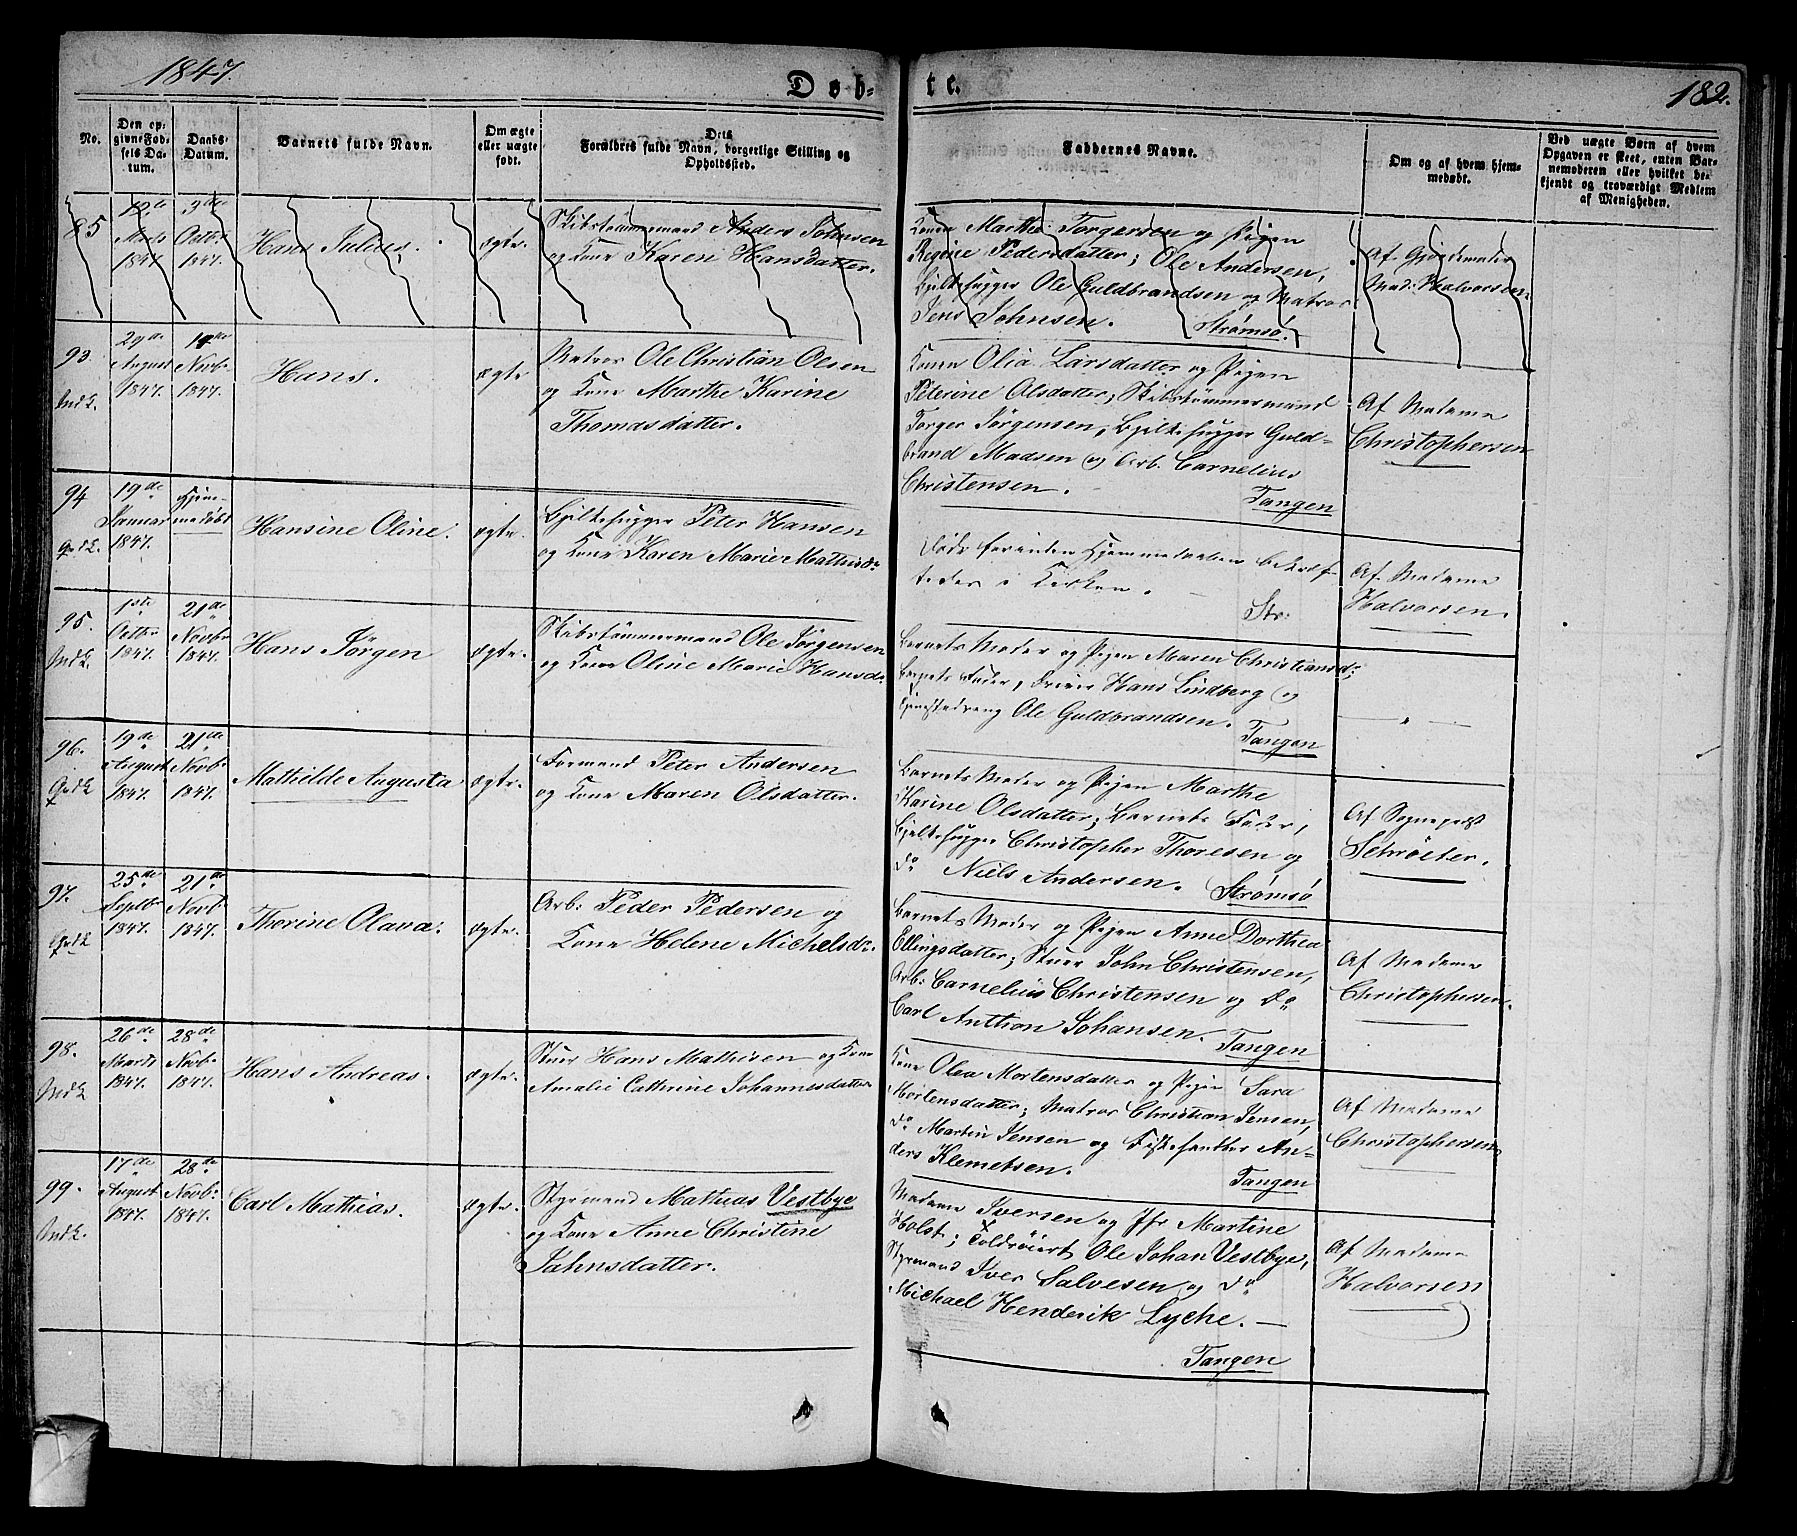 1847.
Døbte.
182.
No.
Den opgivne Fødsels Datum.
Daabs-Datum.
Barnets fulde Navn.
Om ægte eller uægte født.
Dets Forældres fulde Navn, borgerlige Stilling og Opholdssted.
Faddernes Navne.
Om og af hvem hjemmedøbt.
Ved uægte Børn af hvem Opgaven er skeet, enten Barnemoderen eller hvilket bekjendt og troværdigt Medlem af Menigheden.
85
12te
1847.
3die
Octbr.
1847.
Hans Julius.
ægte.
Skibstømmermand Anders Johnsen
og Kone Karen Hansdatter.
Konen Marthe Torgersen og Pigen
Regine Pedersdatter; Ole Andersen,
Bjelkehugger Ole Guldbrandsen og Matros
Jens Johnsen. Strømsø.
Af Gjordemoder
Mad: Halvorsen
93
Ind K.
29de
August
1847.
Novbr.
1847.
Hans.
ægte
Matros Ole Christian Olsen
og Kone Marthe Karine
Thomasdatter.
Konen Olia Larsdatter og Pigen
Peterine Olsdatter; Skibstømmermand
Torger Jørgensen, Bjelkehugger Guld-
brand Madsen og Arb. Cornelius
Christensen.
Tangen
Af Madame
Christophersen
94
19de
Januar
1847.
Hjemmedøbt
Hansine Oline.
ægte.
Bjelkehugger Peter Hansen
og Kone Karen Marie Mathisdr.
Døde forinden Hjemmedaaben bekræf-
tedes i Kirken.
Str:
Af Madame
Halvorsen.
95.
Ind K.
1ste
Octbr.
1847.
21de
Novbr.
1847.
Hans Jørgen
ægte.
Skibstømmermand Ole Jørgensen
og Kone Oline Marie Hansdr.
Barnets Moder og Pigen Maren Christiansd;
Barnets Fader, Hans Lindberg og
Ole Guldbrandsen.
Tangen
96.
19de
August
1847.
21de
Novbr.
1847.
Mathilde Augusta
ægte.
Formand Peter Andersen
og Kone Maren Olsdatter.
Barnets Moder og Pigen Marthe
Karine Olsdatter; Barnets Fader,
Bjelkehugger Christopher Thoresen og
Do Niels Andersen. Strømsø
Af Sognepræst
Schrøeter.
97.
25de
Septbr.
1847.
21de
Novbr.
1847.
Thorine Olava.
ægte.
Arb: Peder Pedersen og
Kone Helene Michelsdr.
Barnets Moder og Pigen Anne Dorthea
Ellingsdatter; Stuer John Christensen,
Arb: Cornelius Christensen og Do
Carl Anthon Johansen. Tangen
Af Madame
Christophersen.
98.
Ind K
26de
Marts
1847.
28de
Novbr.
1847.
Hans Andreas.
ægte.
Stuer Hans Mathisen og Kone
Amalie Cathrine Johannesdatter
Kone Olea Mortensdatter og Pigen Sara
Mortensdatter; Matros Christian Jensen,
Do Martin Jensen og An-
ders Klemetsen.
Tangen
Af Madame
Christophersen
99.
Ind K.
17de
August
1847.
28de
Novbr.
1847.
Carl Mathias.
ægte.
Styrmand Mathias Vestbye
og Kone Anne Christine
Jahnsdatter.
Madame Iversen og Jfr Martine
Holst; Toldrøiert Ole Johan Vestbye,
Styrmand Iver Salvesen og Do
Michael Henderik Lyche.
Tangen
Af Madame
Halvorsen